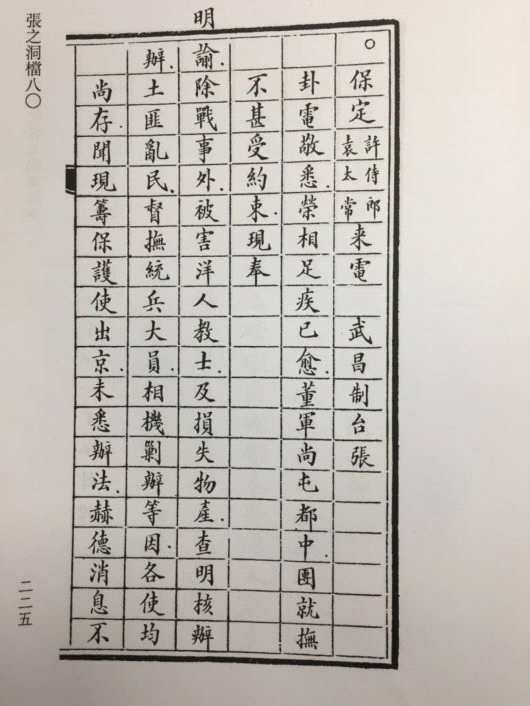 ○保定許侍郎袁太常来電 武昌制台張
卦電敬悉.榮相足疾已愈.董軍尚屯都中.團就撫
不甚受約束.現奉
明諭.除戰事外.被害洋人教士.及損失物產.查明核辦
辦.土匪亂民.督撫統兵大員.相機剿辦等因.各使均
尚存.聞現籌保護使出京.未悉辦法.赫德消息不
張之洞檔八〇
二二五